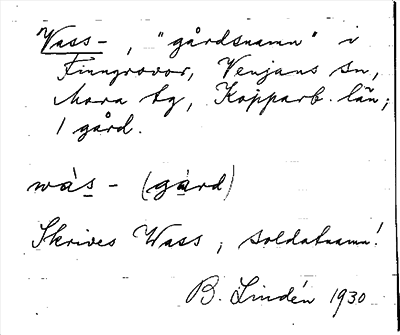 Vass-, "gårdsnamn" i
Finngruvor, Venjans sn,
Mora tg, Kopparb. län;
1 gård.
wàs - (gård)
Skrives Wass; soldatnamn!
B. Lindén 1930